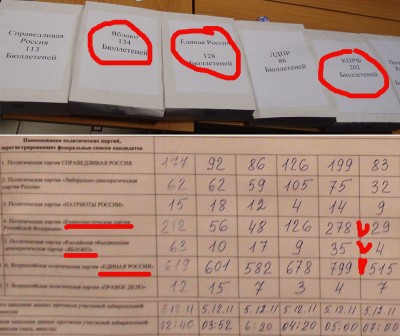 Справедливая
Россия
113
Бюллетеней
Яблоко
134
Бюллетеней
Единая Россия
128
бюллетеней
ЛДПР
86
Бюллетеней
КПРФ
202
Бюллетеней
Наименования политических партий,
зарегистрировавших федеральные списки кандидатов
1. Политическая партия СПРАВЕДЛИВАЯ РОССИЯ 177 92 86 126 199 83
2. Политическая партия «Либерально-демократическая
партия России» 62 62 59 105 75 32
3. Политическая партия «ПАТРИОТЫ РОССИИ» 15 18 12 4 14 9
4. Политическая партия «Коммунистическая партия
Российской Федерации» 212 56 48 126 278 29
5. Политическая партия «Российская объединенная
демократическая партия «ЯБЛОКО» 63 10 17 9 35 4
6. Всероссийская политическая партия «ЕДИНАЯ РОССИЯ» 619 601 582 678 799 515
7. Всероссийская политическая партия «ПРАВОЕ ДЕЛО» 12 15 7 3 4 7
5.12.11 5.12.11 5.12.11 5.12.11 5.12.11 5.12.11
02:40 03:52 6:20 04:20 05:00 07:00